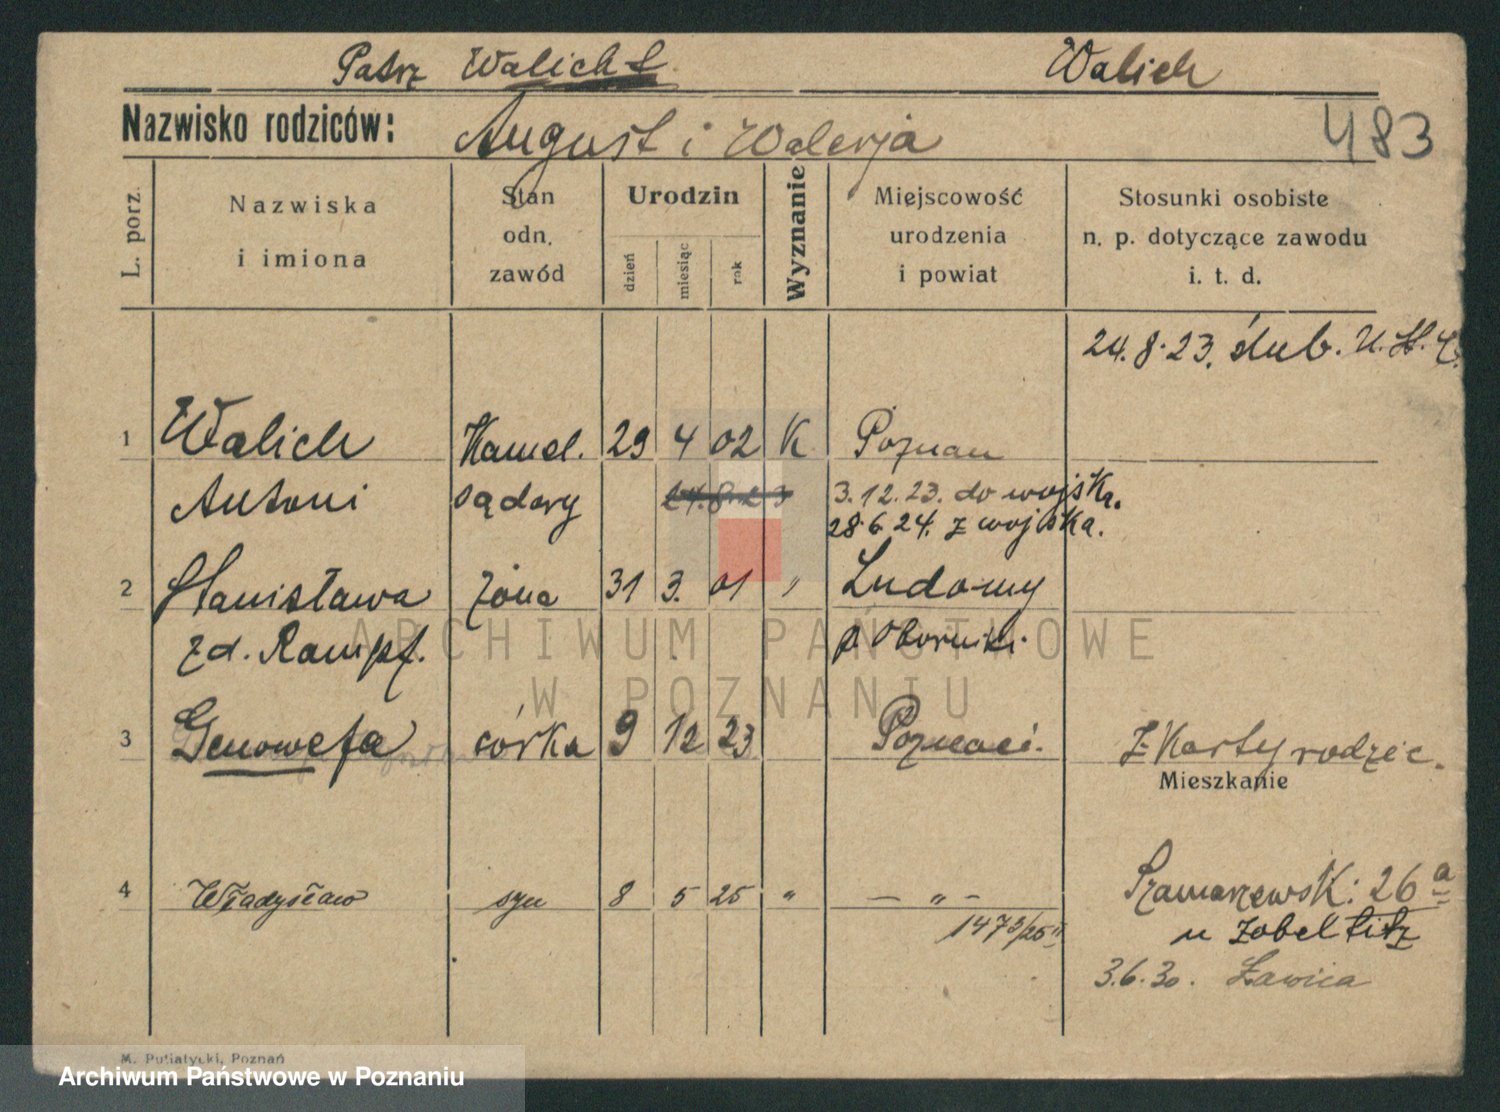 Patrz Walicht Walich
Nazwisko rodziców: August i Walerja 483
L. porz.
Nazwiska
i imiona
Stan
odn.
zawód
Urodzin
dzień
miesiąc
rok
Wyznanie
Miejscowość
urodzenia
i powiat
Stosunki osobiste
n. p. dotyczące zawodu
i. t. d.
24.8.23. ślub.
1 Walich Kancel. 29 4 02 K Poznań
Antoni sądowy 24.8.23 3.12.23. do wojska.
28.6.24. z wojska.
2 Stanisława żona 31 3. 01 " Ludomy
zd. Rampf. p. Oborniki.
3 Genowefa córka 9 12 23 Poznań. z Karty rodzic.
Mieszkanie
4 Władysław syn 8 5 25 " — " — Szamarzewsk: 26 a
1473/25 II u
3.6.30. Ławica
M. Putiatycki, Poznań
ARCHIWUM PAŃSTWOWE
W POZNANIU
Archiwum Państwowe w Poznaniu